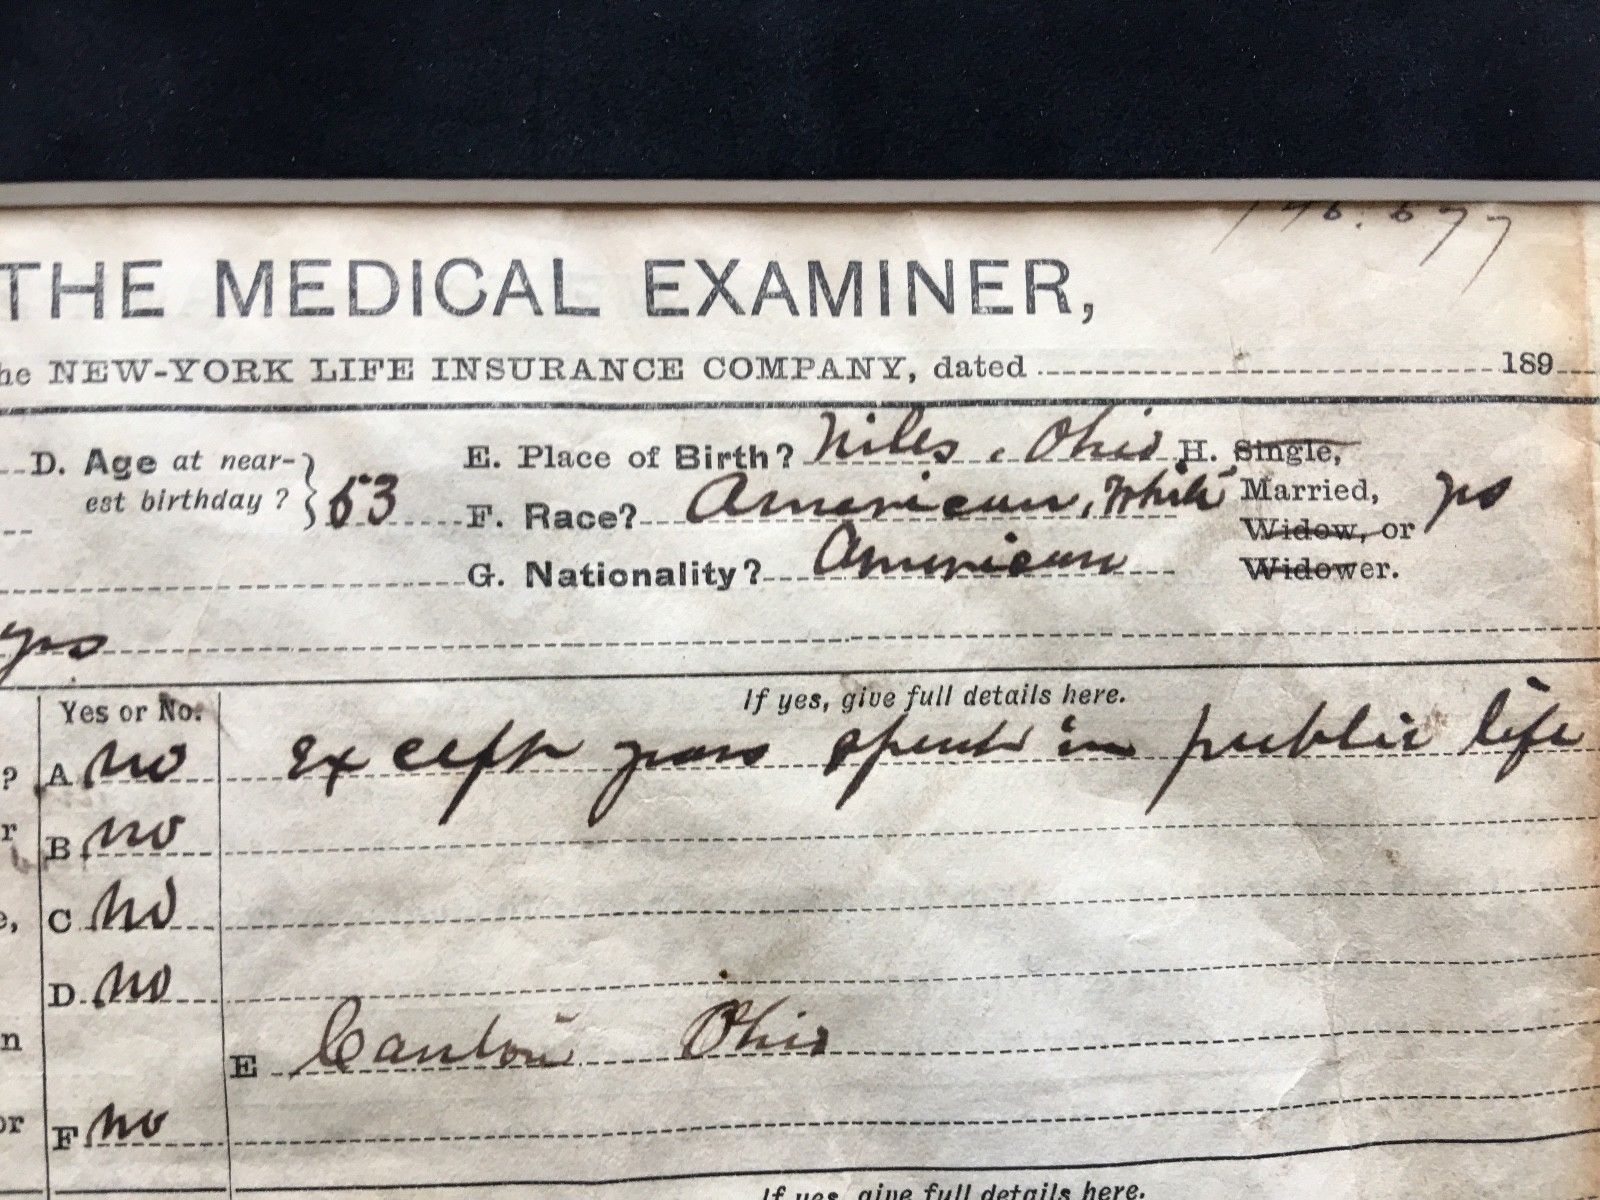 THE MEDICAL EXAMINER,
he NEW-YORK LIFE INSURANCE COMPANY, dated 189
D. Age at near-
est birthday? 53
E. Place of Birth? Niles, Ohio
F. Race? American, White
G. Nationality? American
H. Single,
Married, yes
Widow, or
Widower.
yes
Yes or No. If yes, give full details here.
? A no Except years spent in public life
r B no
e, C no
D no
n E Canton Ohio
or F no
If yes, give full details here.